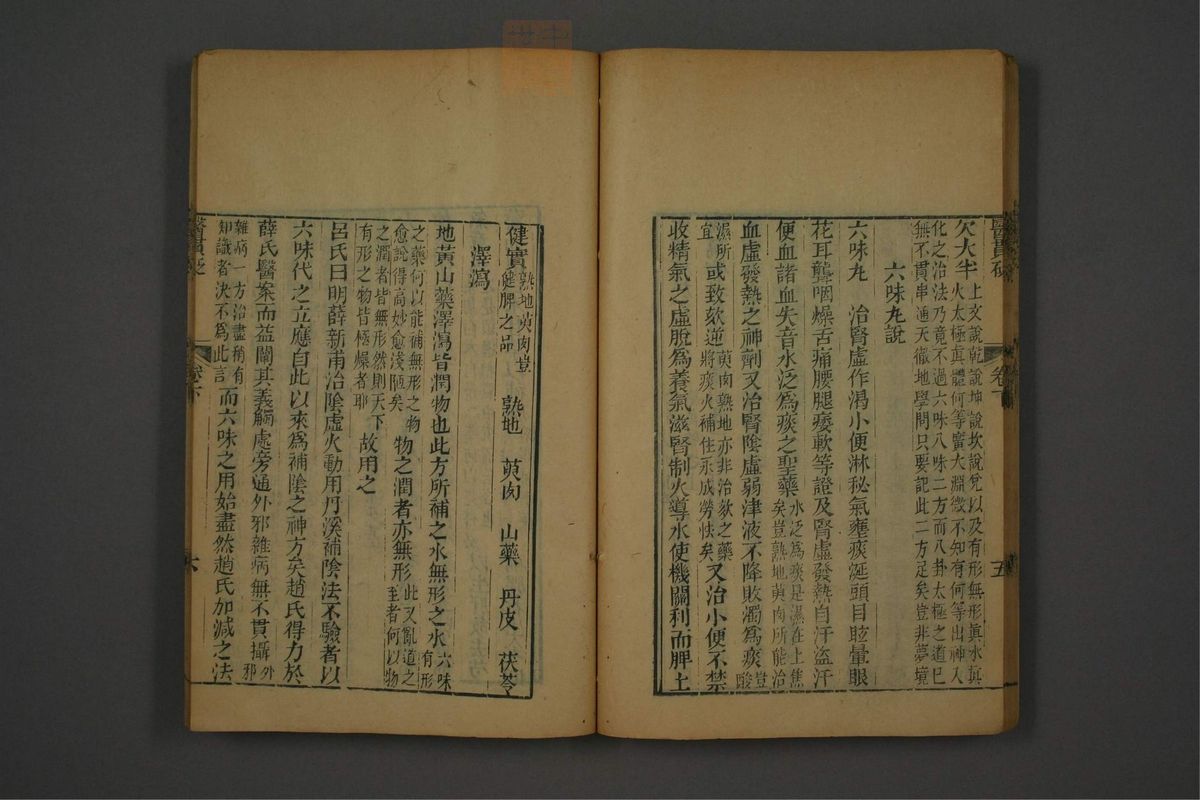 醫貫砭
卷下
五
欠大半上文說乾說坤說坎說兌以及有形無形眞水眞
火太極眞體何等實大淵微不知有何等出神入
化之治法乃竟不過六味八味二方而八卦太極之道已
無不貫串通天徹地學問只要記此二方足矣豈非夢境
六味丸說
六味丸　治腎虛作渴小便淋秘氣壅痰涎頭目眩暈眼
花耳聾咽燥舌痛腰腿痿軟等證及腎虛發熱自汗盜汗
便血諸血失音水泛爲痰之聖藥水泛爲痰是濕在上焦
矣豈熟地萸肉所能治
血虛發熱之神劑又治腎陰虛弱津液不降敗濁爲痰豈
酸
濕所
宜
或致欬逆萸肉熟地亦非治欬之藥
將痰火補住永成勞怯矣
又治小便不禁
收精氣之虛脫爲養氣滋腎制火導水使機關利而脾土
健實熟地萸肉豈
健脾之品
熟地　萸肉　山藥　丹皮　茯苓
澤瀉
地黃山藥澤瀉皆潤物也此方所補之水無形之水六味
有形
之藥何以能補無形之物
愈說得高妙愈淺陋矣
物之潤者亦無形此又亂道之
至者何以物
之潤者皆無形然則天下
有形之物皆極燥者耶
故用之
呂氏曰明薛新甫治陰虛火動用丹溪補陰法不驗者以
六味代之立應自此以來爲補陰之神方矣趙氏得力於
薛氏醫案而益闡其義觸處旁通外邪雜病無不貫攝外
邪
雜病一方治盡稍有
知識者決不爲此言
而六味之用始盡然趙氏加減之法
醫貫砭
卷下
六